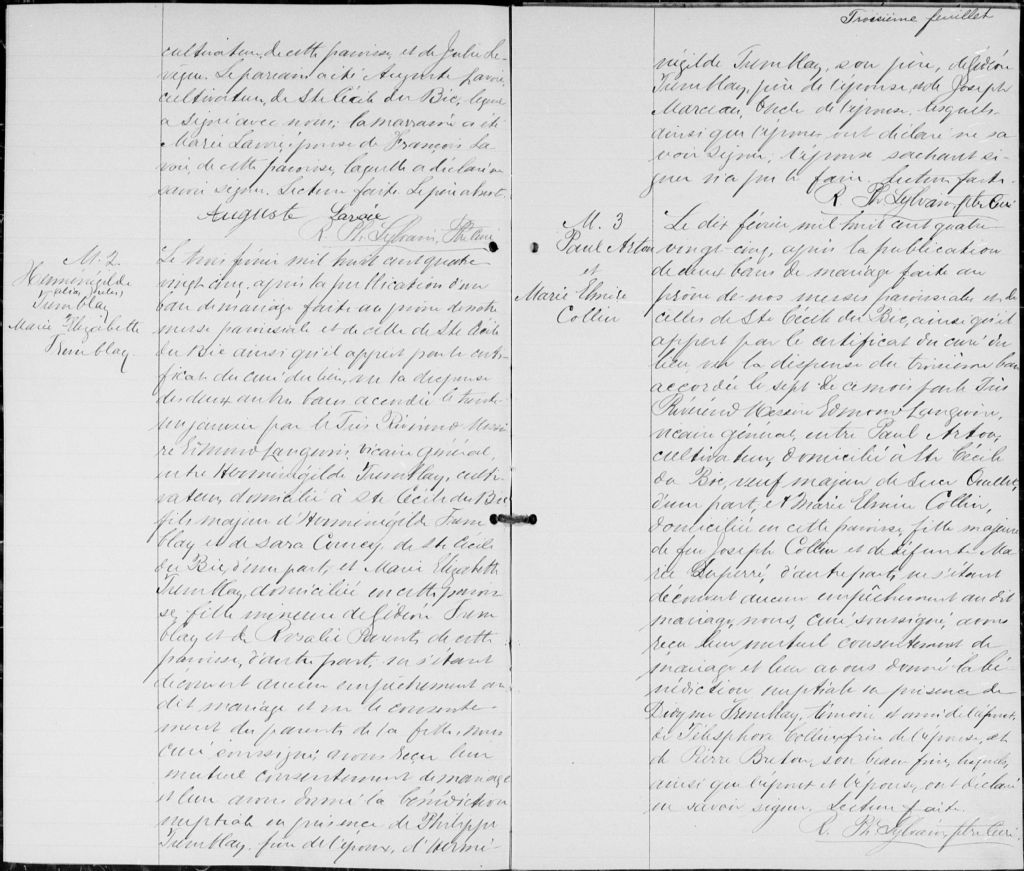 cultivateur, de cette paroisse, et de Julie Le-
vêque. Le parrain a été Auguste Lavoie
cultivateur, de Ste Cécile du Bic, lequel
a signé avec nous; la marraine a été
Marie Lavoie, épouse de François La-
voie, de cette paroisse, laquelle a déclaré ne
savoir signer. Lecture faite. Le père absent.
Auguste Lavoie
R. Ph. Sylvain, Ptre Curé
M. 2
Herménégilde
Tremblay
Marie Elizabeth
Tremblay
Le trois février mil huit cent quatre-
vingt cinq, après la publication d'un
ban de mariage faite au prône de notre
messe paroissiale et de celle de Ste Cécile
du Bic ainsi qu'il appert par le certi-
ficat du curé du lieu, vu la dispense
des deux autres bans accordée le trente-
un janvier par le Très Révérend Messi-
re Edmond Langevin, vicaire général,
entre Herménégilde Tremblay, culti-
vateur, domicilié à Ste Cécile du Bic
fils majeur d'Herménégilde Trem-
blay et de Sara Comey, de Ste Cécile
du Bic, d'une part, et Marie Elizabeth
Tremblay, domiciliée en cette parois-
se, fille mineure de Gédéon Trem-
blay et de Rosalie Parent, de cette
paroisse, d'autre part, ne s'étant
découvert aucun empêchement au
dit mariage et vu le consente-
ment des parents de la fille, nous
curé soussigné, avons reçu leur
mutuel consentement de mariage
et leur avons donné la bénédiction
nuptiale en présence de Philippe
Tremblay, frère de l'époux, d'Hermé-
Troisième feuillet
négilde Tremblay, son père, de Gédéon
Tremblay, père de l'épouse, et de Joseph
Marceau, oncle de l'épouse, lesquels
ainsi que l'époux ont déclaré ne sa-
voir signer; l'épouse sachant si-
gner n'a pu le faire. Lecture faite.
R. Ph. Sylvain, ptre Curé
M. 3
Paul Arton
et
Marie Elmire
Collin
Le dix février mil huit cent quatre
vingt-cinq, après la publication
de deux bans de mariage faite au
prône de nos messes paroissiales et de
celles de Ste Cécile du Bic, ainsi qu'il
appert par le certificat du curé du
lieu, vu la dispense du troisième ban
accordée le sept de ce mois par le Très
Révérend Messire Edmond Langevin,
vicaire général, entre Paul Arton,
cultivateur, domicilié à Ste Cécile
du Bic, veuf majeur de Luce Ouellet,
d'une part, et Marie Elmire Collin,
domiciliée en cette paroisse, fille majeure
de feu Joseph Collin et de défunte Ma-
rie Duperré, d'autre part, ne s'étant
découvert aucun empêchement au dit
mariage, nous, curé soussigné, avons
reçu leur mutuel consentement de
mariage et leur avons donné la bé-
nédiction nuptiale en présence de
Tremblay, témoin et ami de l'époux,
de Télesphore Collin, frère de l'épouse, et
de Pierre Breton, son beau frère, lesquels,
ainsi que l'époux et l'épouse, ont déclaré
ne savoir signer. Lecture faite.
R. Ph. Sylvain, ptre Curé